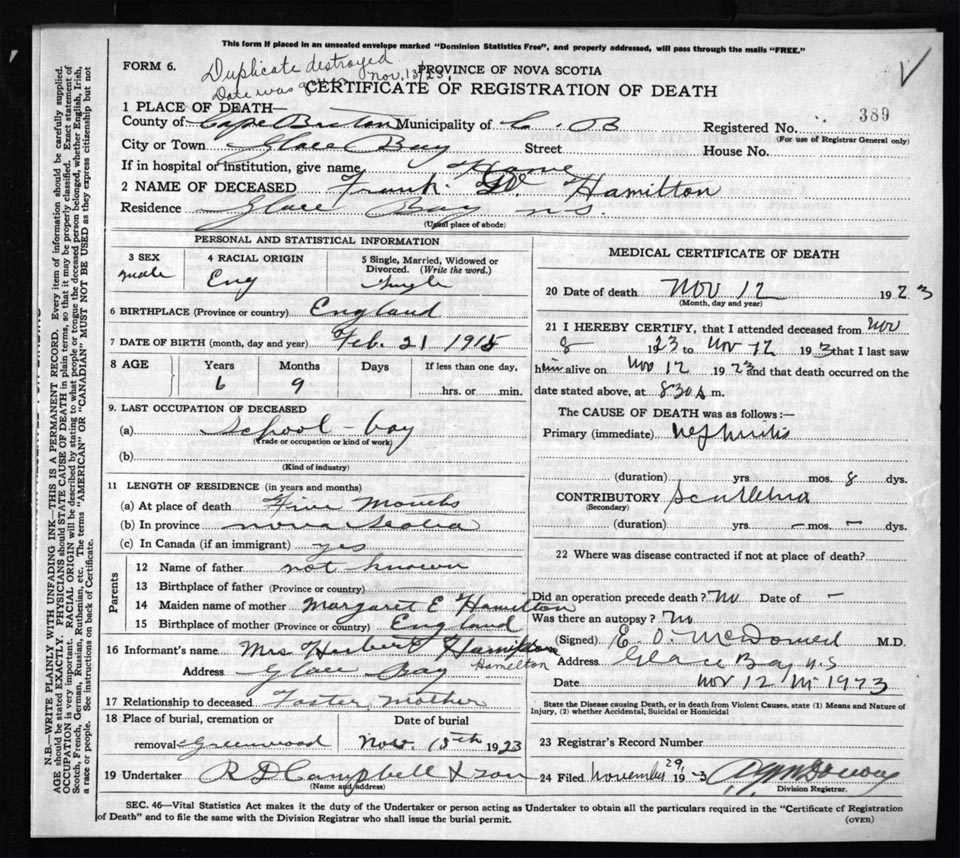 This form if placed in an unsealed envelope marked "Dominion Statistics Free", and properly addressed, will pass through the mails "FREE."
FORM 6.
Duplicate destroyed
Nov. 13/23
PROVINCE OF NOVA SCOTIA
Date was
CERTIFICATE OF REGISTRATION OF DEATH
389
1 PLACE OF DEATH—
County of Cape Breton Municipality of C. B Registered No.
(For use of Registrar General only)
City or Town Glace Bay Street House No.
If in hospital or institution, give name Home
2 NAME OF DECEASED Frank W Hamilton
Residence Glace Bay N.S.
(Usual place of abode)
PERSONAL AND STATISTICAL INFORMATION
3 SEX
male
4 RACIAL ORIGIN
Eng
5 Single, Married, Widowed or Divorced. (Write the word.)
Single
6 BIRTHPLACE (Province or country) England
7 DATE OF BIRTH (month, day and year) Feb. 21 191
8 AGE Years Months Days If less than one day,
6 9 hrs. or min.
9. LAST OCCUPATION OF DECEASED
(a) School-boy
(Trade or occupation or kind of work)
(b)
(Kind of industry)
11 LENGTH OF RESIDENCE (in years and months)
(a) At place of death Five Months
(b) In province Nova Scotia
(c) In Canada (if an immigrant) yes
Parents
12 Name of father not known
13 Birthplace of father (Province or country)
14 Maiden name of mother Margaret E Hamilton
15 Birthplace of mother (Province or country) England
16 Informant's name Mrs Herbert Hamilton
Hamilton
Address Glace Bay
17 Relationship to deceased Foster Mother
18 Place of burial, cremation or Date of burial
removal Greenwood Nov. 15th 1923
19 Undertaker R D Campbell & son
(Name and address)
MEDICAL CERTIFICATE OF DEATH
20 Date of death Nov 12 1923
(Month, day and year)
21 I HEREBY CERTIFY, that I attended deceased from Nov
8 1923 to Nov 12 1923 that I last saw
him alive on Nov 12 1923 and that death occurred on the
date stated above, at 830 A m.
The CAUSE OF DEATH was as follows:—
Primary (immediate) Nephritis
(duration) yrs. mos. 8 dys.
CONTRIBUTORY
(Secondary)
(duration) yrs. – mos. – dys.
22 Where was disease contracted if not at place of death?
Did an operation precede death? No Date of –
Was there an autopsy? No
(Signed) E. O. M.D.
Address Glace Bay N.S
Date Nov 12 1923
State the Disease causing Death, or in death from Violent Causes, state (1) Means and Nature of
Injury, (2) whether Accidental, Suicidal or Homicidal
23 Registrar's Record Number
24 Filed November 29, 19 3
Division Registrar.
SEC. 46—Vital Statistics Act makes it the duty of the Undertaker or person acting as Undertaker to obtain all the particulars required in the "Certificate of Registration
of Death" and to file the same with the Division Registrar who shall issue the burial permit. (OVER)
N.B.—WRITE PLAINLY WITH UNFADING INK—THIS IS A PERMANENT RECORD. Every item of information should be carefully supplied.
AGE should be stated EXACTLY. PHYSICIANS should STATE CAUSE OF DEATH in plain terms, so that it may be properly classified. Exact statement of
OCCUPATION is very important. RACIAL ORIGIN will be described by stating to what people or tongue the deceased person belonged, whether English, Irish,
Scotch, French, German, Russian, Ruthenian, etc. The terms "AMERICAN" OR "CANADIAN" MUST NOT BE USED as they express citizenship but not
a race or people. See instructions on back of Certificate.